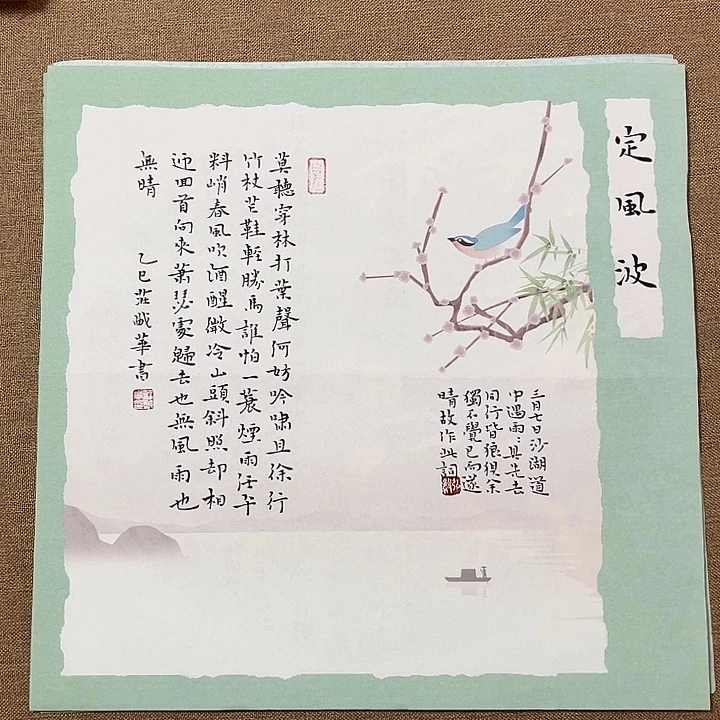 定風波
三月七日沙湖道
中遇雨〻具先去
同行皆狼狽余
獨不覺已而遂
晴故作此詞
莫聽穿林打葉聲何妨吟嘯且徐行
竹杖芒鞋輕勝馬誰怕一蓑煙雨任平
料峭春風吹酒醒微冷山頭斜照却相
迎回首向來蕭瑟處歸去也無風雨也
無晴
乙巳莊華書